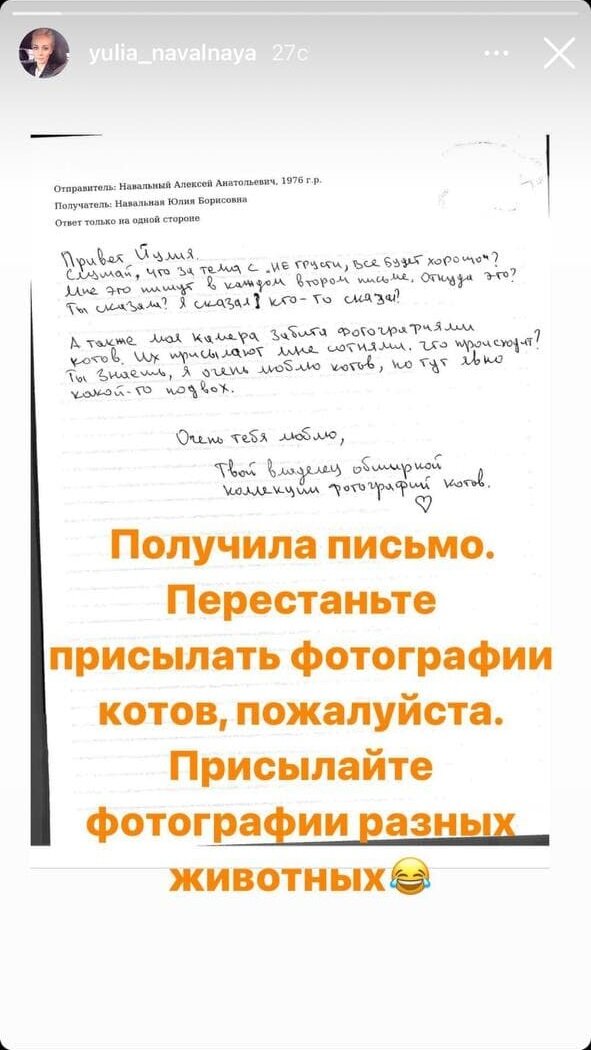 yulia_navalnaya 27с
Отправитель: Навальный Алексей Анатольевич, 1976 г.р.
Получатель: Навальная Юлия Борисовна
Ответ только на одной стороне
Привет Йулия.
Слушай, что за тема с „НЕ ГРУСТИ, Все будет хорошо"?
Мне это пишут в каждом втором письме. Откуда это?
Ты сказала? Я сказал? кто-то сказал?
А также моя камера забита фотографиями
котов. Их присылают мне сотнями. что происходит?
Ты знаешь, я очень люблю котов, но тут явно
какой-то подвох.
Очень тебя люблю,
Твой владелец обширной
коллекции фотографий котов.
♡
Получила письмо.
Перестаньте
присылать фотографии
котов, пожалуйста.
Присылайте
фотографии разных
животных😂